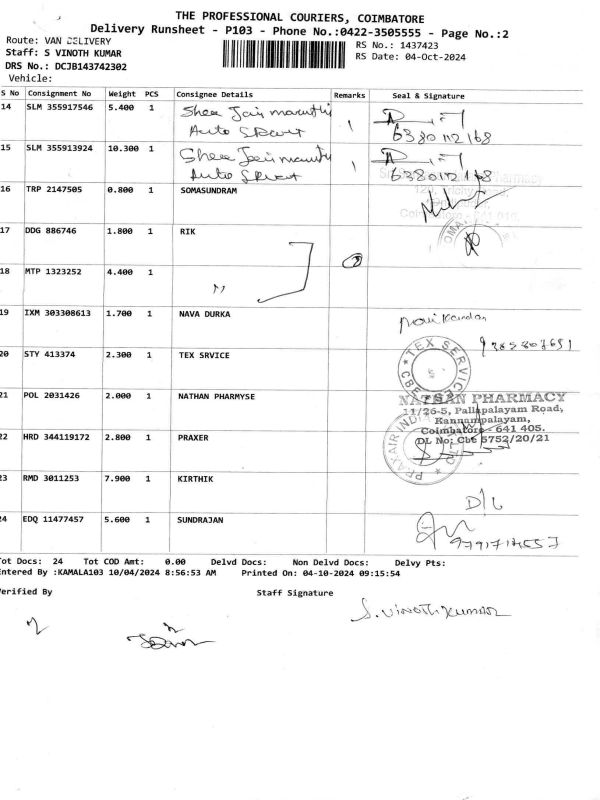 THE PROFESSIONAL COURIERS, COIMBATORE
Delivery Runsheet - P103 - Phone No.:0422-3505555 - Page No.:2
Route: VAN DELIVERY
RS No.: 1437423
Staff: S VINOTH KUMAR
RS Date: 04-Oct-2024
DRS No.: DCJB143742302
Vehicle:
S No Consignment No Weight PCS Consignee Details Remarks Seal & Signature
14 SLM 355917546 5.400 1 Shee Jain maruthi
Auto
6380112168
15 SLM 355913924 10.300 1 Shee Jain maruthi
Auto
6380112168
16 TRP 2147505 0.800 1 SOMASUNDRAM
17 DDG 886746 1.800 1 RIK
18 MTP 1323252 4.400 1 "
19 IXM 303308613 1.700 1 NAVA DURKA
20 STY 413374 2.300 1 TEX SRVICE
TEX SERVICE
CBE
21 POL 2031426 2.000 1 NATHAN PHARMYSE
NATHAN PHARMACY
11/26-5, Pallapalayam Road,
Kannampalayam,
Coimbatore - 641 405.
DL No: Cbe 5752/20/21
22 HRD 344119172 2.800 1 PRAXER
PRAXAIR INDIA
LTD
23 RMD 3011253 7.900 1 KIRTHIK
D/L
24 EDQ 11477457 5.600 1 SUNDRAJAN
Tot Docs: 24 Tot COD Amt: 0.00 Delvd Docs: Non Delvd Docs: Delvy Pts:
Entered By :KAMALA103 10/04/2024 8:56:53 AM Printed On: 04-10-2024 09:15:54
Verified By Staff Signature
S. Vinothkumar